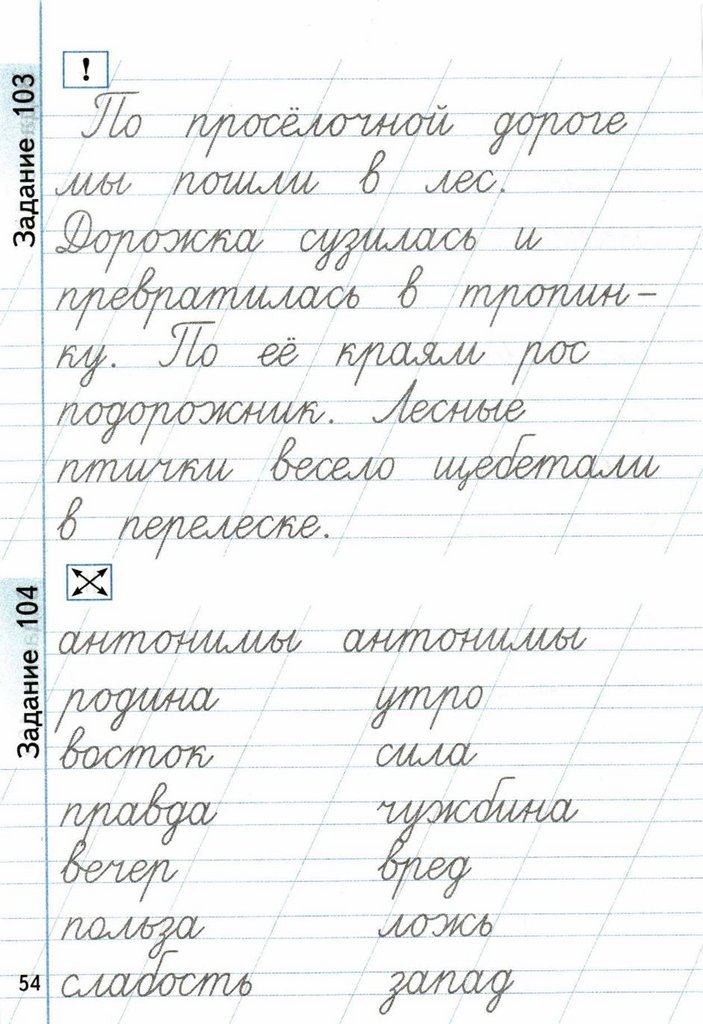 Задание 103
!
По просёлочной дороге
мы пошли в лес.
Дорожка сузилась и
превратилась в тропин-
ку. По её краям рос
подорожник. Лесные
птички весело щебетали
в перелеске.
Задание 104
антонимы антонимы
родина утро
восток сила
правда чужбина
вечер вред
польза ложь
слабость запад
54